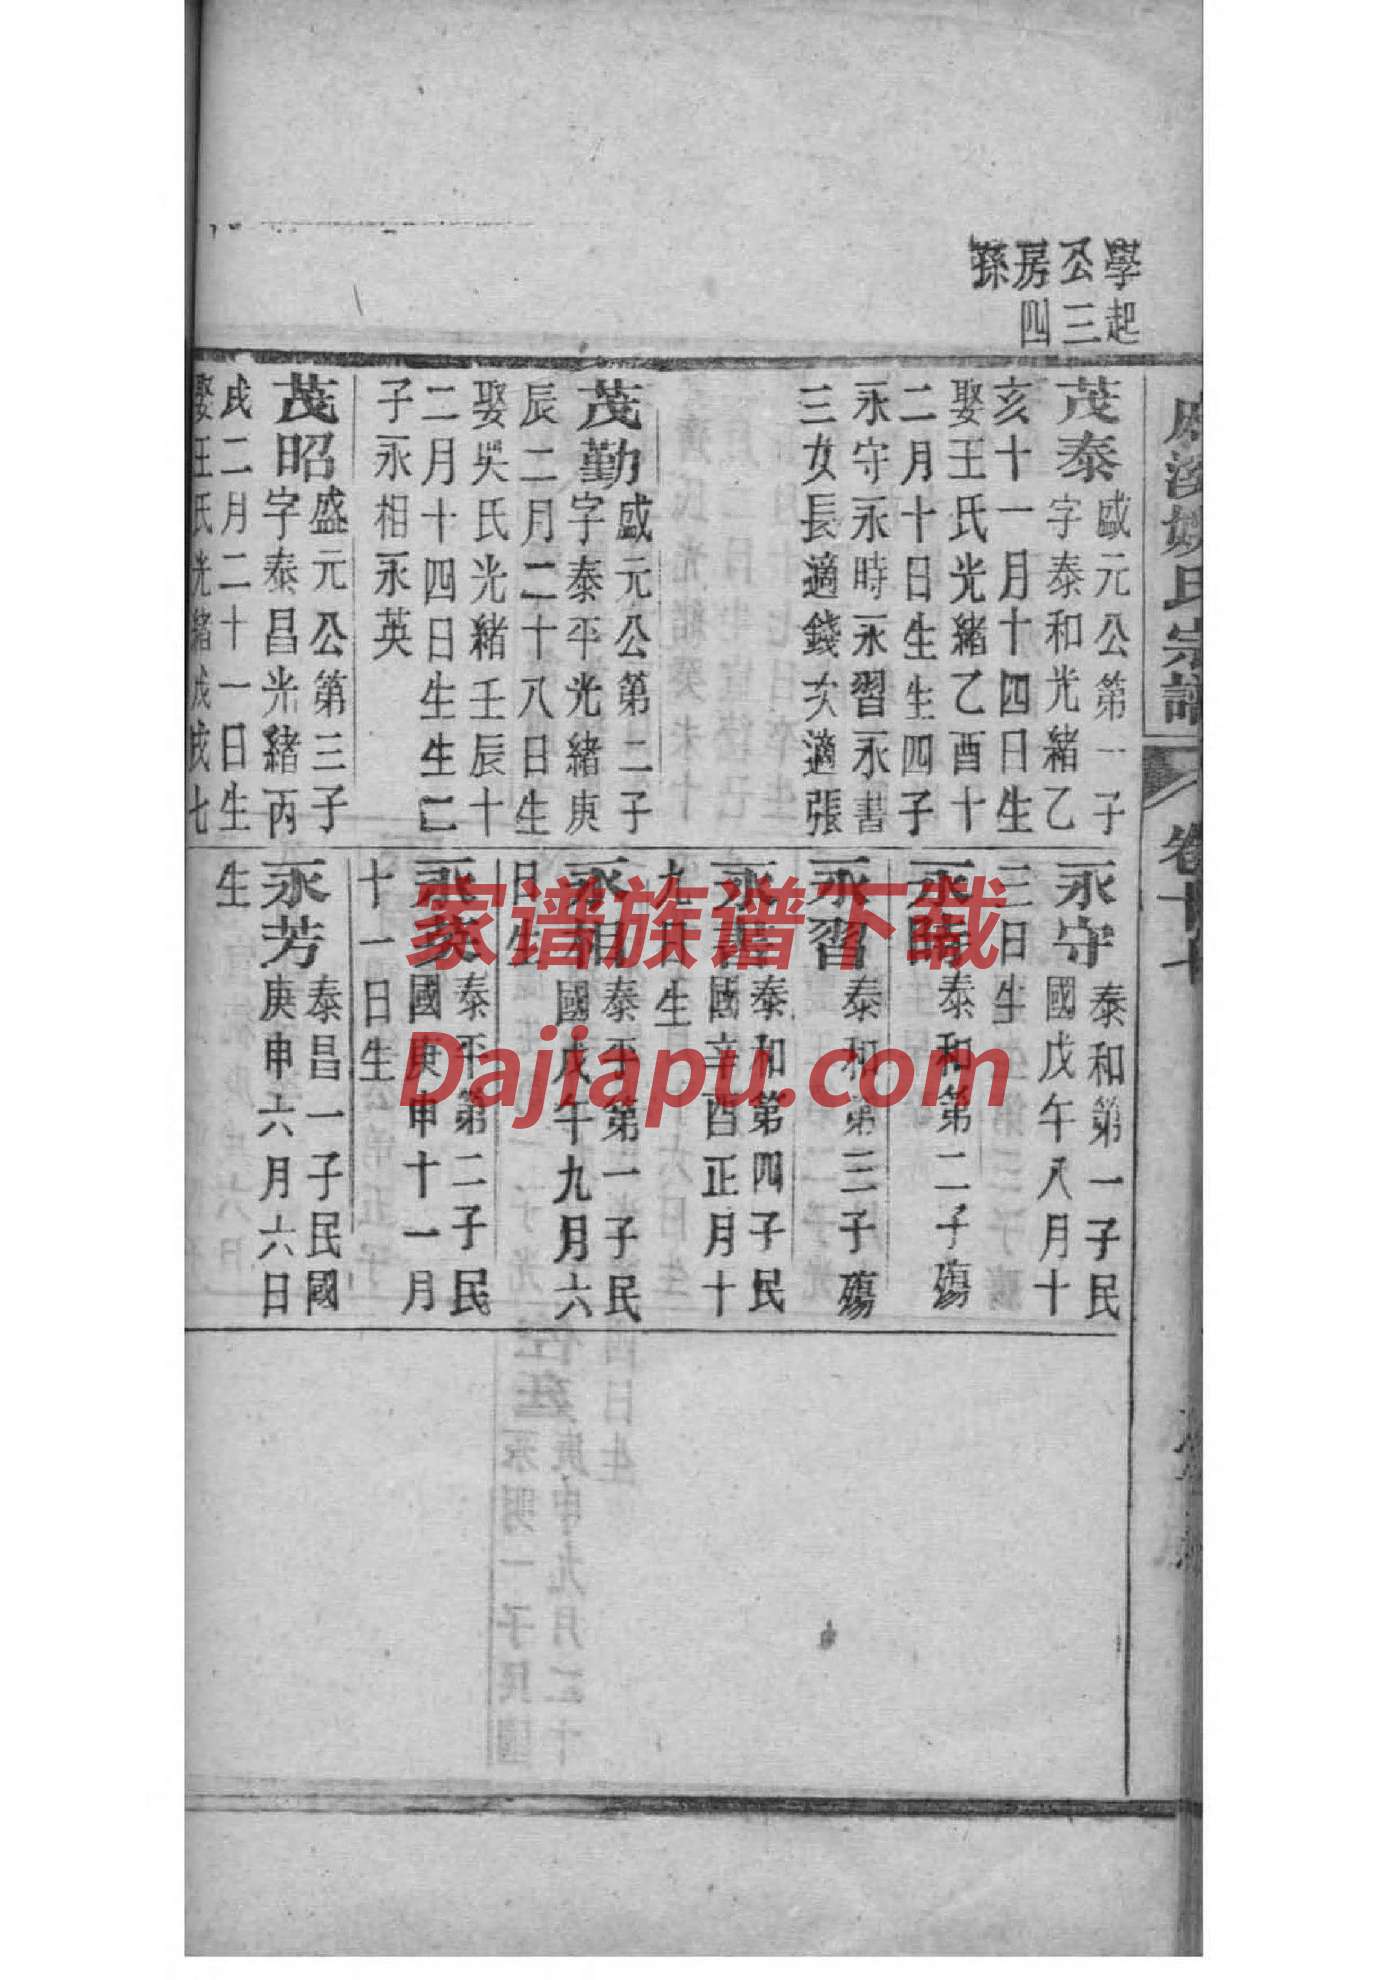 學起
公三
房四
孫
茂泰
盛元公第一子
字泰和光緒乙
亥十一月十四日生
娶王氏光緒乙酉十
二月十日生生四子
永守永時永習永書
三女長適錢次適張
茂勤
盛元公第二子
字泰平光緒庚
辰二月二十八日生
娶吳氏光緒壬辰十
二月十四日生生二
子永相永英
茂昭
盛元公第三子
字泰昌光緒丙
戌二月二十一日生
娶王氏光緒戊戌七
永守
泰和第一子民
國戊午八月十
三日生
永時
泰和第二子殤
永習
泰和第三子殤
永書
泰和第四子民
國辛酉正月十
九日生
永相
泰平第一子民
國戊午九月六
日生
永英
泰平第二子民
國庚申十一月
十一日生
永芳
泰昌一子民國
庚申六月六日
生
氏宗譜
卷十
家谱族谱下载
Dajiapu.com